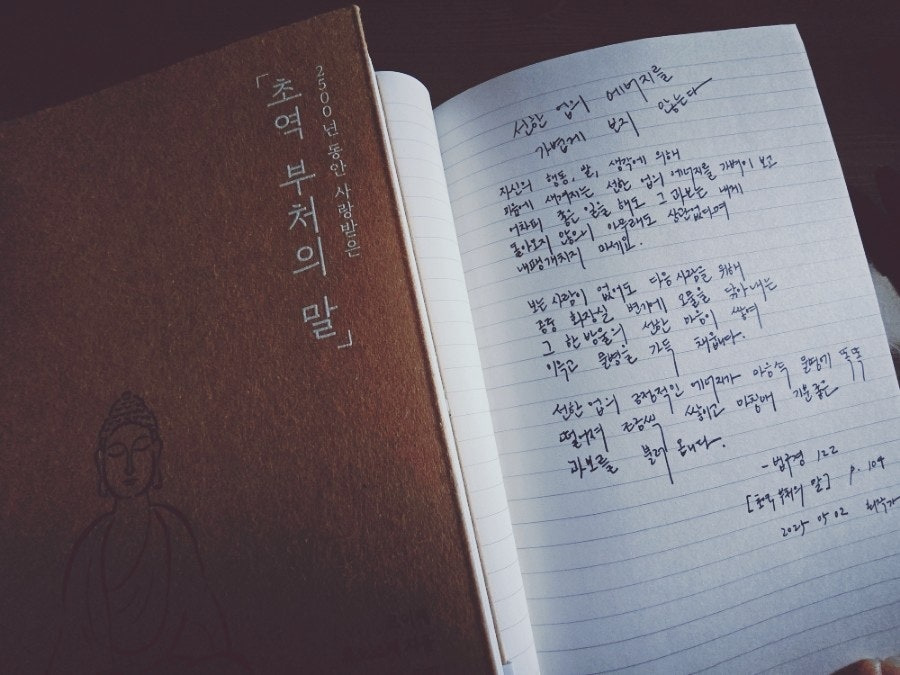 2500년 동안 사랑받은
「초역 부처의 말」
선한 업의 에너지를
가볍게 보지 않는다
자신의 행동, 말, 생각에 의해
마음에 새겨지는 선한 업의 에너지를 가벼이 보고
어차피 좋은 일을 해도 그 과보는 내게
돌아오지 않으니 아무래도 상관없다며
내팽개치지 마세요.
보는 사람이 없어도 다음 사람을 위해
공중 화장실 변기에 오물을 닦아내는
그 한 방울의 선한 마음이 쌓여
이윽고 물병을 가득 채웁니다.
선한 업의 긍정적인 에너지가 마음속 물병에 똑똑
떨어져 조금씩 쌓이고 마침내 기분 좋은
과보를 불러 옵니다.
- 법구경 122
[초역 부처의 말] p. 104
2025 05 02